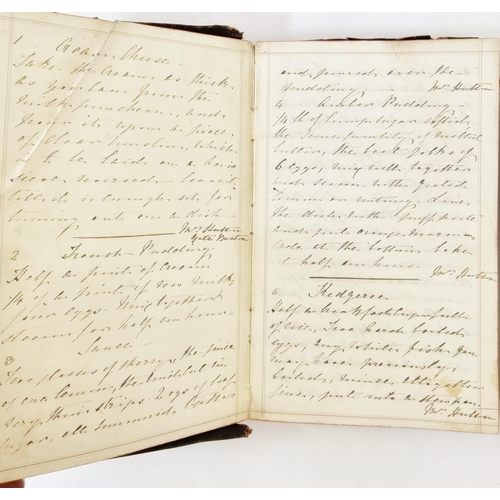 1 Cream Cheese
Take the Cream as thick
as you can from the
milk puncheon, and
pour it upon a piece
of clear muslin, which
is to be laid on a hair
Sieve,
till it is enough set for
turning out on a dish
Mrs Hutton
Gate Burton
2 French Pudding
Half a pint of Cream
1/4 of a pint of New milk
four eggs. Mix together
steam for half an hour
Sauce
3
Two glasses of sherry, the juice
of one Lemon, the rind cut in
very thin strips 2 ozs of loaf
Sugar all simmered
and poured over the
pudding. Mrs Hutton
4 Amber Pudding
1/4 lb of lump sugar sifted,
the same quantity of melted
butter, the beat yolks of
6 eggs, mix well together
and season with grated
Lemon or nutmeg. Line
the dish with puff paste
and put orange marma
lade at the bottom bake
it half an hour.
Mrs Hutton
5 Kedgeree
Half a breakfast cup full
of rice, Two hard boiled
eggs, any white fish you
may have previously
boiled, mince altogether
fine, put into a stewpan
Mrs Hutton